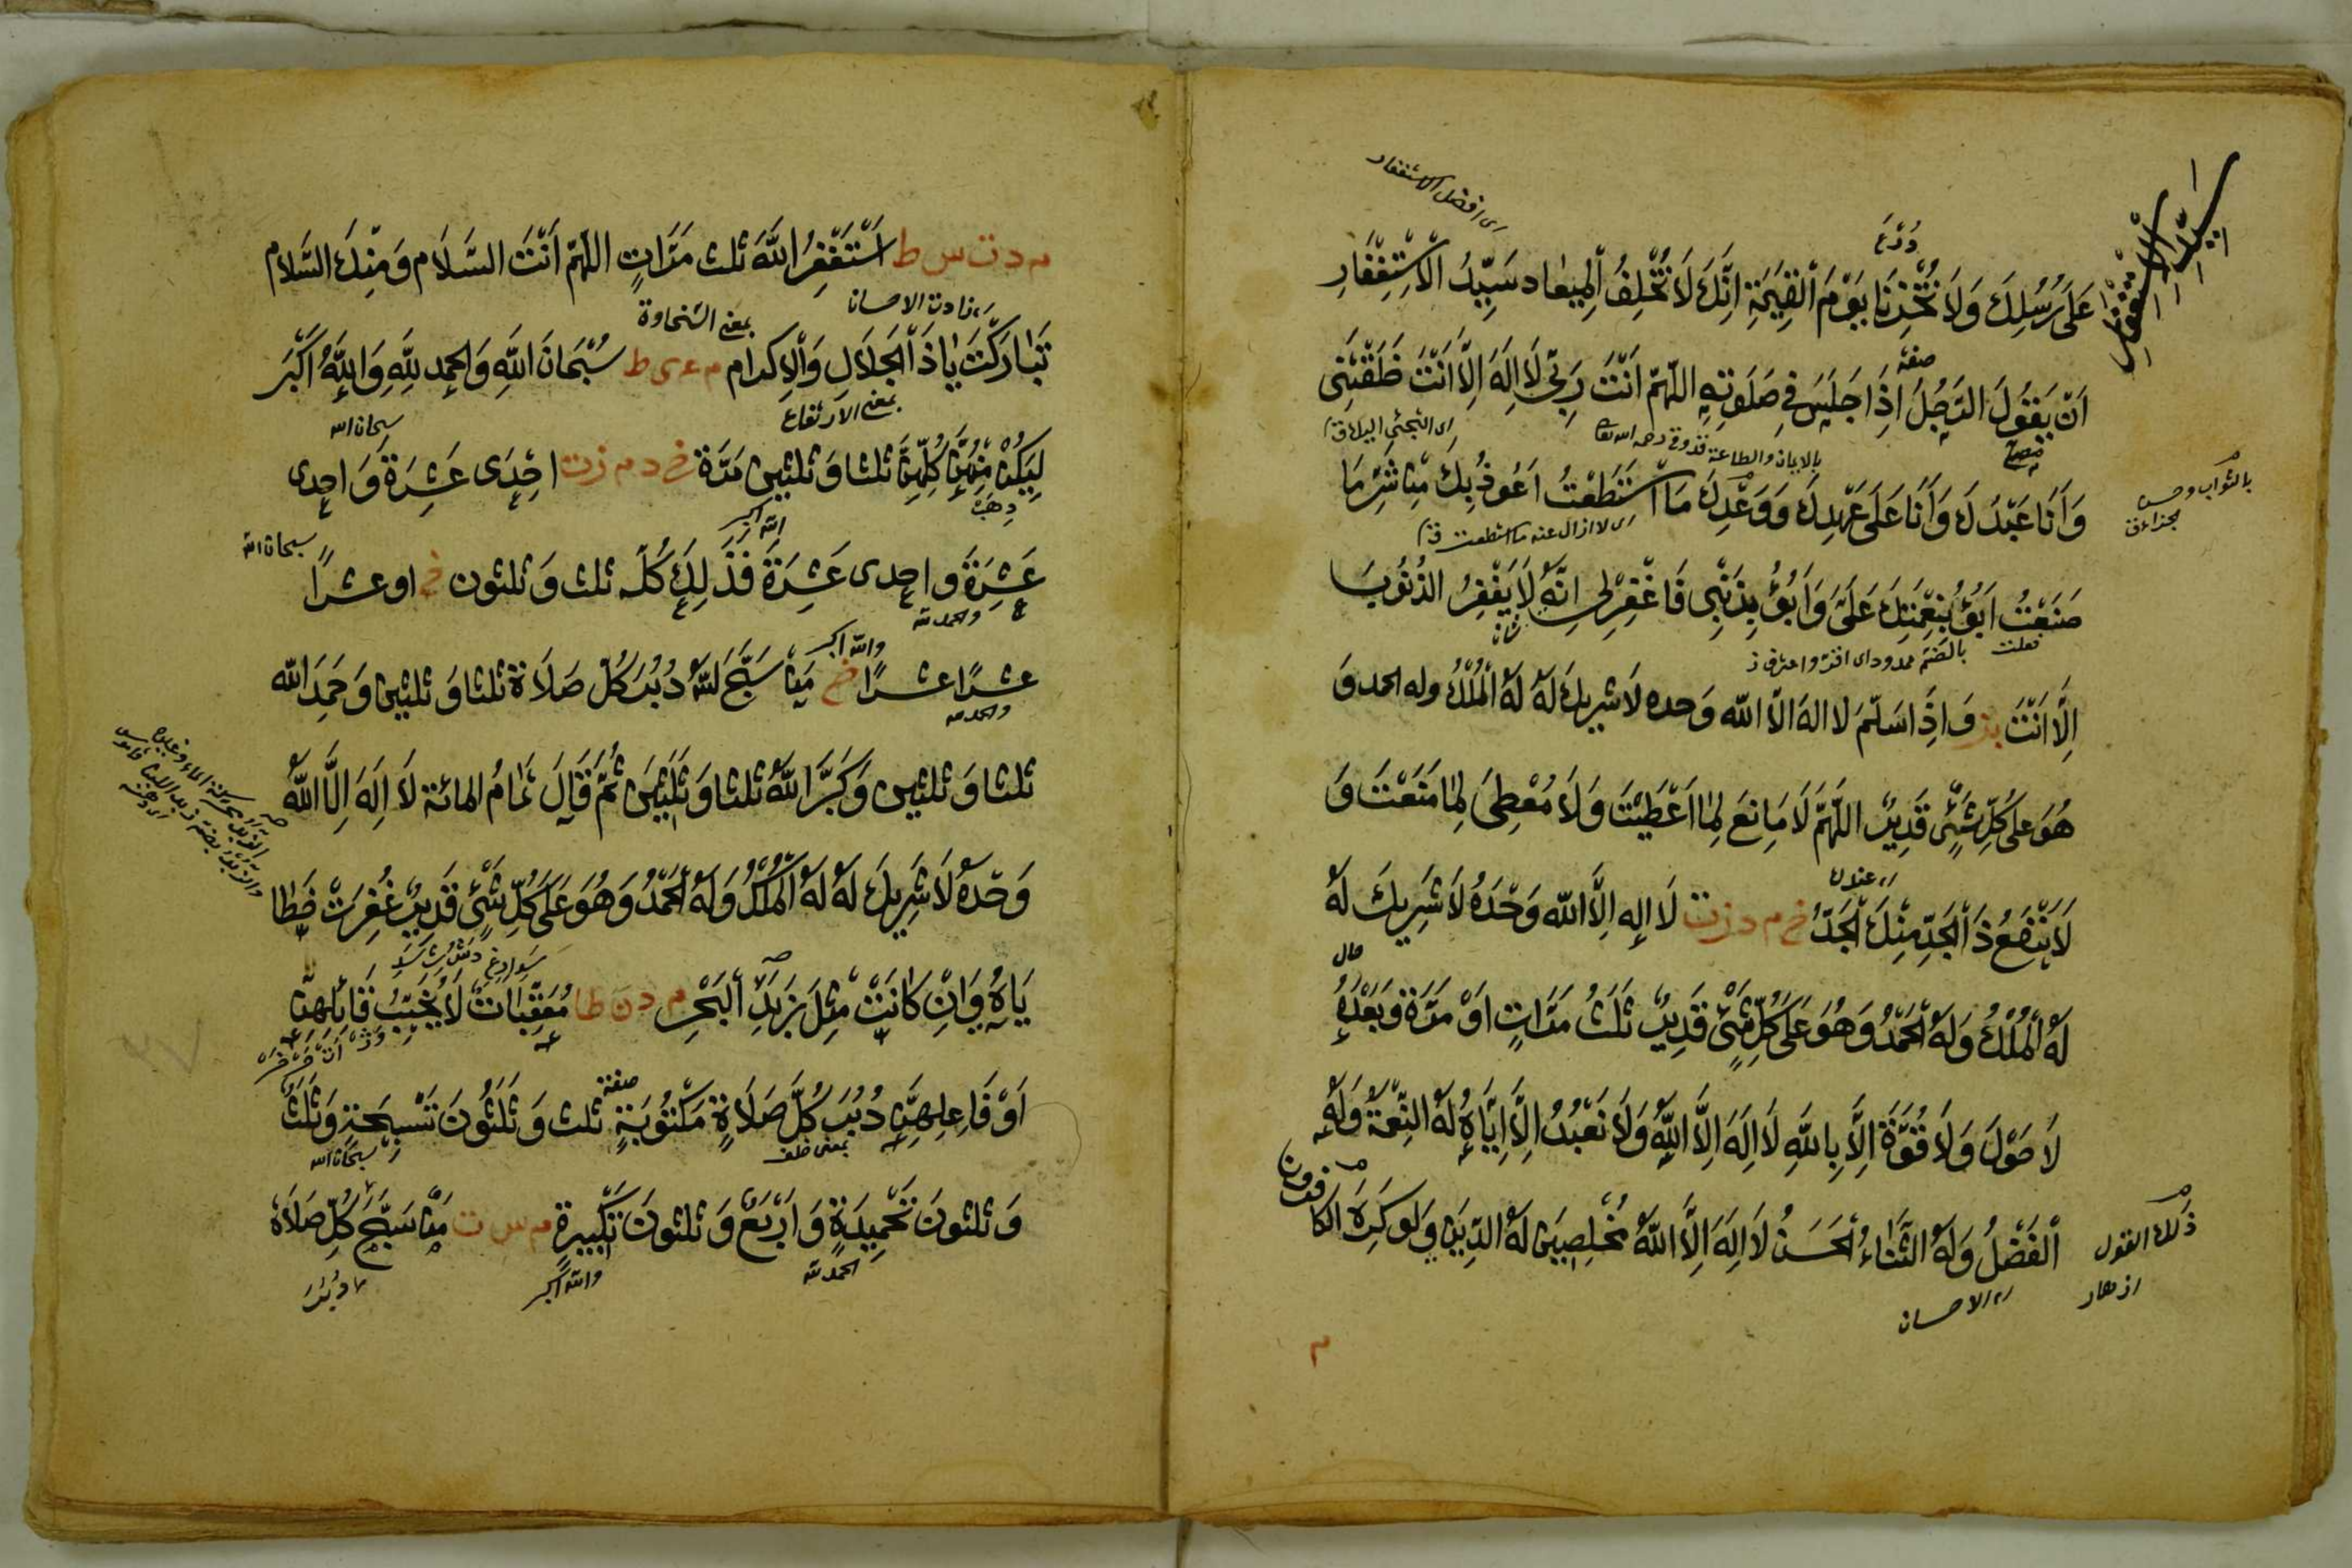 ای افضل الاستغفار
سید الاستغفار
عَلَى رُسُلِكَ وَلَا تُخْزِنَا يَوْمَ الْقِيٰمَةِ اِنَّكَ لَا تُخْلِفُ الْمِيعَاد سَيِّدُ الْاِسْتِغْفَارِ
صفة
اَنْ يَقُولَ الرَّجُلُ اِذَا جَلَسَ فِي صَلٰوتِهِ اللّٰهُمَّ اَنْتَ رَبِّي لَا اِلٰهَ اِلَّا اَنْتَ خَلَقْتَنِي
بالايمان والطاعة
وَاَنَا عَبْدُكَ وَاَنَا عَلَى عَهْدِكَ وَوَعْدِكَ مَا اسْتَطَعْتُ اَعُوذُ بِكَ مِنْ شَرِّ مَا
ای لا ازال عنه ما استطعت
صَنَعْتُ اَبُوْءُ بِنِعْمَتِكَ عَلَىَّ وَاَبُوْءُ بِذَنْبِي فَاغْفِرْلِي اِنَّهُ لَا يَغْفِرُ الذُّنُوبَ
فعلت
بالضم ممدودا ای اقر واعترف
اِلَّا اَنْتَ وَاِذَا سَلَّمَ لا اله الّا الله وَحده لَا شَرِيكَ لَهُ لَهُ الْمُلْكُ وله الحمد وَ
هُوَ على كُلِّ شَيْءٍ قَدِيرٌ اللّٰهُمَّ لَا مَانِعَ لِمَا اَعْطَيْتَ وَلَا مُعْطِيَ لِمَا مَنَعْتَ وَ
عندك
لَا يَنْفَعُ ذَا الْجَدِّ مِنْكَ الْجَدُّ خ م د ز ت لَا اِلٰه اِلَّا الله وَحْدَهُ لَا شَرِيكَ لَهُ
لَهُ الْمُلْكُ وَلَهُ الْحَمْدُ وَهُوَ عَلَى كُلِّ شَيْءٍ قَدِيرٌ ثَلٰثَ مَرَّاتٍ اَوْ مَرَّةً وَبَعْدَهُ
لَا حَوْلَ وَلَا قُوَّةَ اِلَّا بِاللّٰهِ لَا اِلٰهَ اِلَّا اللّٰهُ وَلَا نَعْبُدُ اِلَّا اِيَّاهُ لَهُ النِّعْمَةُ وَلَهُ
اَلْفَضْلُ وَلَهُ الثَّنَاءُ الْحَسَنُ لَا اِلٰهَ اِلَّا اللّٰهُ مُخْلِصِينَ لَهُ الدِّينَ وَلَو كَرِهَ الكافرون
ذلك القول
الاحسان
م د ت س ط اَسْتَغْفِرُ اللّٰهَ ثلث مَرَّاتٍ اللّٰهُمَّ اَنْتَ السَّلَام وَمِنْكَ السَّلَام
بمعنی السخاوة
تَبَارَكْتَ يَا ذَا الْجَلَالِ وَالْاِكرَام م ع ى ط سُبْحَانَ اللّٰهِ وَالْحمدُ لِلّٰهِ وَاللّٰهُ اَكْبَر
بمعنی الارتفاع
سبحان الله
لِيَكُنْ مِنْهُنَّ كُلِّهِنَّ ثلثا وَثلثين مَرَّة خ د م ز ت اِحْدَى عَشِرَة وَاحدى
الله اكبر
سبحان الله
عَشِرَة وَاحدى عَشِرَة فَذَلِكَ كُلّه ثلث وَثلثون خ او عشراً
والحمد لله
والله اكبر
عشرًا عشرًا خ مَنْ سَبَّحَ للّٰه دُبُرَ كُلِّ صَلَاة ثلثا وَثلثين وَحَمِدَ الله
والحمد لله
ثلثا وَثلثين وَكَبَّرَ اللّٰهَ ثلثا وَثَلٰثين ثُمَّ قَالَ تَمَامَ المائة لَا اِلٰهَ اِلَّا اللّٰهُ
وَحْدَهُ لَا شَرِيكَ لَهُ لَهُ الْمُلْكُ وَلَهُ الْحَمْدُ وَهُوَ عَلَى كُلِّ شَيْءٍ قَدِيرٌ غُفِرَتْ خَطَا
يَاهُ وَاِنْ كَانَتْ مِثْلَ زَبَدِ الْبَحْرِ م د ن ط مُعَقِّبَاتٌ لَا يَخِيبُ قَائِلُهُنَّ
صفة
اَوْ فَاعِلُهُنَّ دُبُرَ كُلِّ صَلَاةٍ مَكْتُوبَةٍ ثلث وَثَلٰثُونَ تَسْبِيحَة وَثَلٰثٌ
بمعنی خلف
سبحان الله
وَثلثونَ تَحْمِيدَةٍ وَاَرْبَعٌ وَثلثونَ تَكْبِيرَةٍ م س ت مَنْ سَبَّحَ كُلِّ صَلَاة
الحمد لله
والله اكبر
دبر